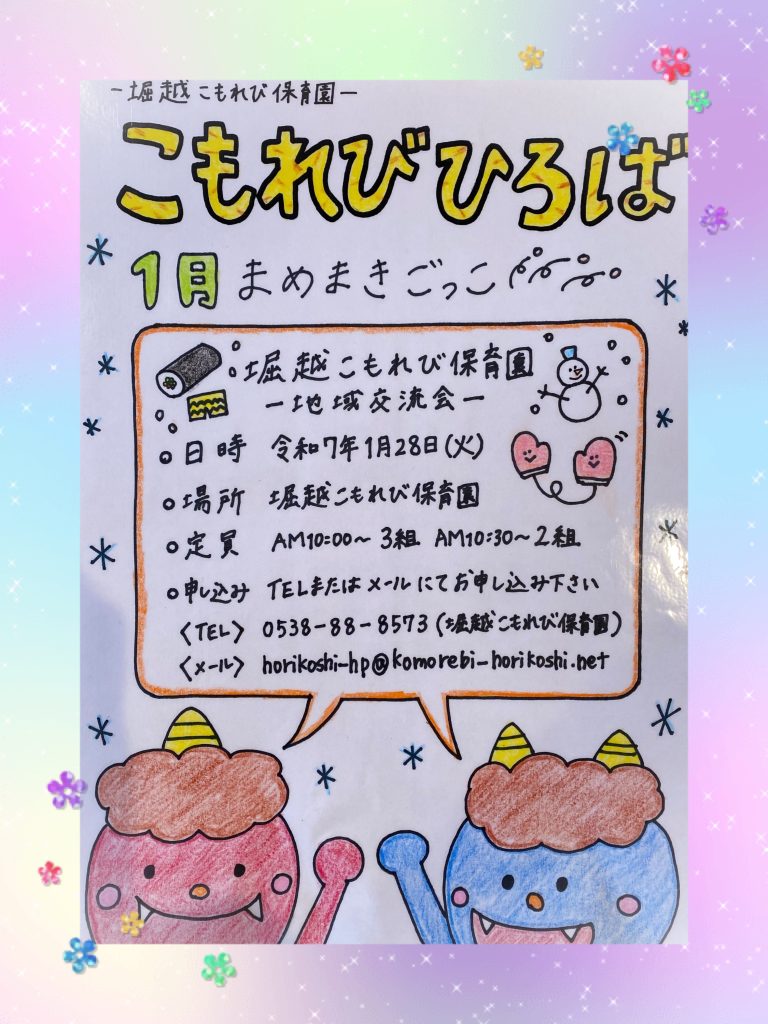 －堀越こもれび保育園－
こもれびひろば
1月 まめまきごっこ
堀越こもれび保育園
－地域交流会－
○日時 令和7年1月28日(火)
○場所 堀越こもれび保育園
○定員 AM10:00〜3組 AM10:30〜2組
○申し込み TELまたはメールにてお申し込み下さい
〈TEL〉 0538-88-8573(堀越こもれび保育園)
〈メール〉 horikoshi-hp@komorebi-horikoshi.net